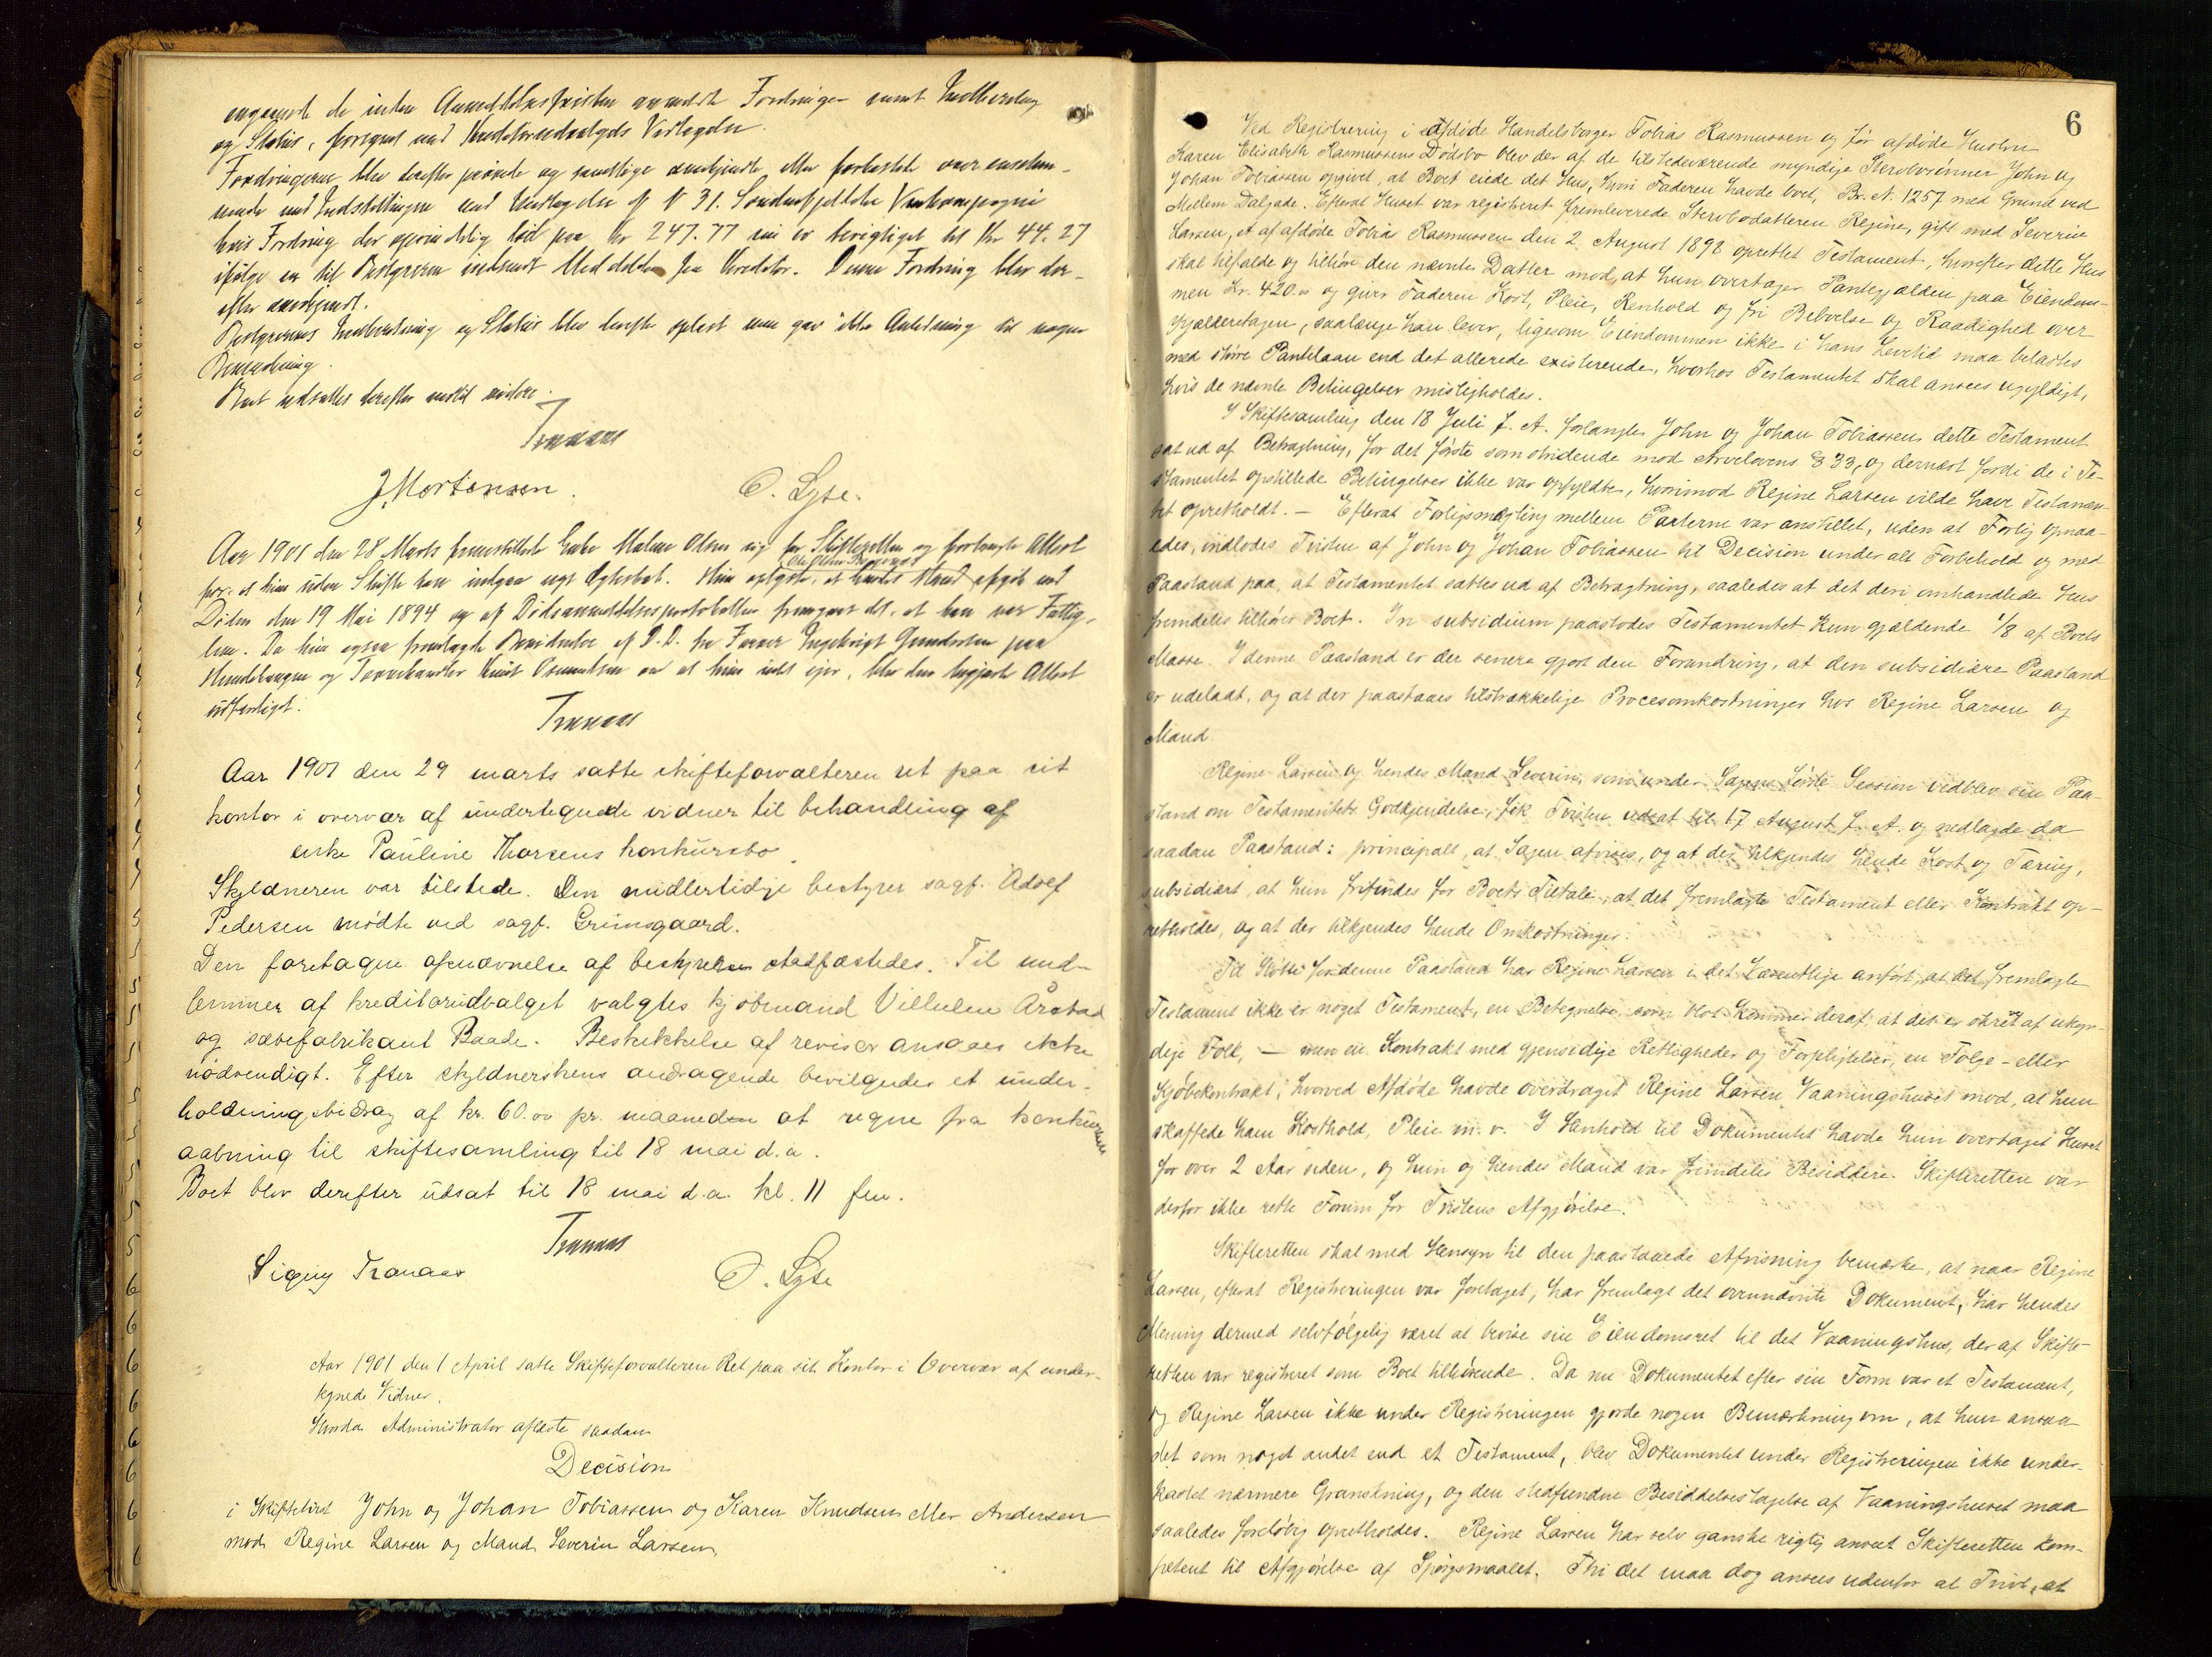 angaaende de inden Anmeldelsesfristen anmeldte Fordringer samt Indberetning
og Status, forsynet med Kreditorudvalgets Vedtagelse.
Fordringerne blev derefter prøvede og samtlige anerkjendte eller forkastede overensstem-
mende med Indstillingen med Undtagelse af N 31. Søndenfjeldske Vinkompagni
hvis Fordring der oprindelig lød paa kr 247.77 nu er berigtiget til Kr 44.27
ifølge en til Bestyreren indsendt Meddelelse fra Kreditor. Denne Fordring blev der-
efter anerkjendt.
Bestyrerens Indberetning og Status blev derefter oplæst men gav ikke Anledning til nogen
Bemerkning.
Boet udsattes derefter indtil videre.
Tranaas
J. Mortensen. O. Lyse.
Aar 1901 den 28 Marts fremstillede Enke Malene Olsen sig for Skifteretten og forlangte Attest
for, at hun uden Skifte kan indgaa nyt Ægteskab. Hun oplyste, at hendes Mand afgik ved
Døden den 19 Mai 1894 og af Dødsanmeldelsesprotokollen fremgaar det, at han var Fattig-
lem. Da hun ogsaa fremlagde Bevidnelse af D.D. fra Farver Ingebrigt Gundersen paa
og Torvehandler Knut Osmundsen om at hun intet ejer, blev den begjærte Attest
udfærdiget.
Tranaas
Aar 1901 den 29 marts satte skifteforvalteren ret paa sit
kontor i overvær af undertegnede vidner til behandling af
enke Pauline Thorsens konkursbo.
Skyldneren var tilstede. Den midlertidige bestyrer sagf. Adolf
Pedersen mødte ved sagf. Grimsgaard.
Den foretagne opnævnelse af bestyrelse stadfæstedes. Til med-
lemmer af kreditorudvalget valgtes kjøbmand Villulm Årstad
og sæbefabrikant Baade. Beskikkelse af revisor ansaaes ikke
nødvendigt. Efter skyldnerskens andragende bevilgedes et under-
holdningsbidrag af kr. 60.00 pr. maaneden at regne fra konkursens
aabning til skiftesamling til 18 mai d.a.
Boet blev derefter udsat til 18 mai d.a. kl. 11 fm.
Tranaas
Signy Tranaas O. Lyse
Aar 1901 den 1 April satte Skifteforvalteren Ret paa sit Kontor i Overvær af under-
tegnede Vidner.
Hvorda Administrator afsagde saadan
Decision
i Skiftetvist John og Johan Tobiassen og Karen Knudsen eller Andersen
mod Regine Larsen og Mand Severin Larsen.
6
Ved Registrering i afdøde Handelsborger Tobias Rasmussen og før afdøde Hustru
Karen Elisabeth Rasmussens Dødsbo blev der af de tilstedeværende myndige Stervbosønner John og
Johan Tobiassen opgivet, at Boet eiede det Hus, hvori Faderen havde boet, Br. N. 1257 med Grund ved
Mellem Dalgade. Efterat Huset var registreret fremleverede Stervbodatteren Regine, gift med Severin
Larsen, et af afdøde Tobias Rasmussen den 2 August 1898 oprettet Testament, hvorefter dette Hus
skal tilfalde og tilhøre den nævnte Datter mod, at hun overtager Pantegjælden paa Eiendom-
men Kr. 420.00 og giver Faderen Kost, Pleie, Renhold og fri Beboelse og Raadighed over
Kjælderetagen, saalænge han lever, ligesom Eiendommen ikke i hans Levetid maa belastes
med større Pantelaan end det allerede existerende, hvorhos Testamentet skal ansees ugyldigt,
hvis de nævnte Betingelser misligholdes.
I Skiftesamling den 18 Juli f. A. forlangte John og Johan Tobiassen dette Testament
sat ud af Betragtning, for det første som stridende mod Arvelovens § 33, og dernæst fordi de i Te-
stamentet opstillede Betingelser ikke var opfyldte, hvorimod Regine Larsen vilde have Testamen-
tet opretholdt. — Efterat Forligsmægling mellem Parterne var anstillet, uden at Forlig opnaa-
edes, indlodes Tvisten af John og Johan Tobiassen til Decision under alt Forbehold og med
Paastand paa, at Testamentet sættes ud af Betragtning, saaledes at det deri omhandlede Hus
fremdeles tilhører Boet. In subsidium paastodes Testamentet kun gjældende 1/8 af Boets
Masse. I denne Paastand er der senere gjort den Forandring, at den subsidiære Paastand
er udeladt, og at der paastaaes tilstrækkelige Procesomkostninger hos Regine Larsen og
Mand.
Regine Larsen og hendes Mand Severin, som under Sagens første Session vedblev sin Paa-
stand om Testamentets Godkjendelse, fik Tvisten udsat til 17 August f. A. og nedlagde da
saadan Paastand: principalt, at Sagen afvises, og at der tilkjendes hende Kost og Tæring,
subsidiært, at hun frifindes for Boets Tiltale, at det fremlagte Testament eller Kontrakt op-
retholdes, og at der tilkjendes hende Omkostninger.
Til Støtte for denne Paastand har Regine Larsen i det Væsentlige anført, at det fremlagte
Testament ikke er noget Testament, en Betegnelse som blot kommer deraf, at det er skrevet af ukyn-
dige Folk, — men en Kontrakt med gjensidige Rettigheder og Forpligtelser, en Følge- eller
Kjøbekontrakt, hvorved Afdøde havde overdraget Regine Larsen Vaaningshuset mod, at hun
skaffede ham Kosthold, Pleie m. v. I Henhold til Dokumentet havde hun overtaget Huset
for over 2 Aar siden, og hun og hendes Mand var fremdeles Besiddere. Skifteretten var
derfor ikke rette Forum for Tvistens Afgjørelse.
Skifteretten skal med Hensyn til den paastaaede Afvisning bemærke, at naar Regine
Larsen, efterat Registreringen var foretaget, har fremlagt det ovennævnte Dokument, har hendes
Mening dermed selvfølgelig været at bevise sin Eiendomsret til det Vaaningshus, der af Skifte-
retten var registreret som Boet tilhørende. Da nu Dokumentet efter sin Form var et Testament,
og Regine Larsen ikke under Registreringen gjorde nogen Bemærkning om, at hun ansaa
det som noget andet end et Testament, blev Dokumentet under Registreringen ikke under-
kastet nærmere Granskning, og den stedfundne Besiddelsestagelse af Vaaningshuset maa
saaledes foreløbig opretholdes. Regine Larsen har selv ganske rigtig anseet Skifteretten kom-
petent til Afgjørelse af Spørgsmaalet. Thi det maa dog ansees udenfor al Tvivl, at